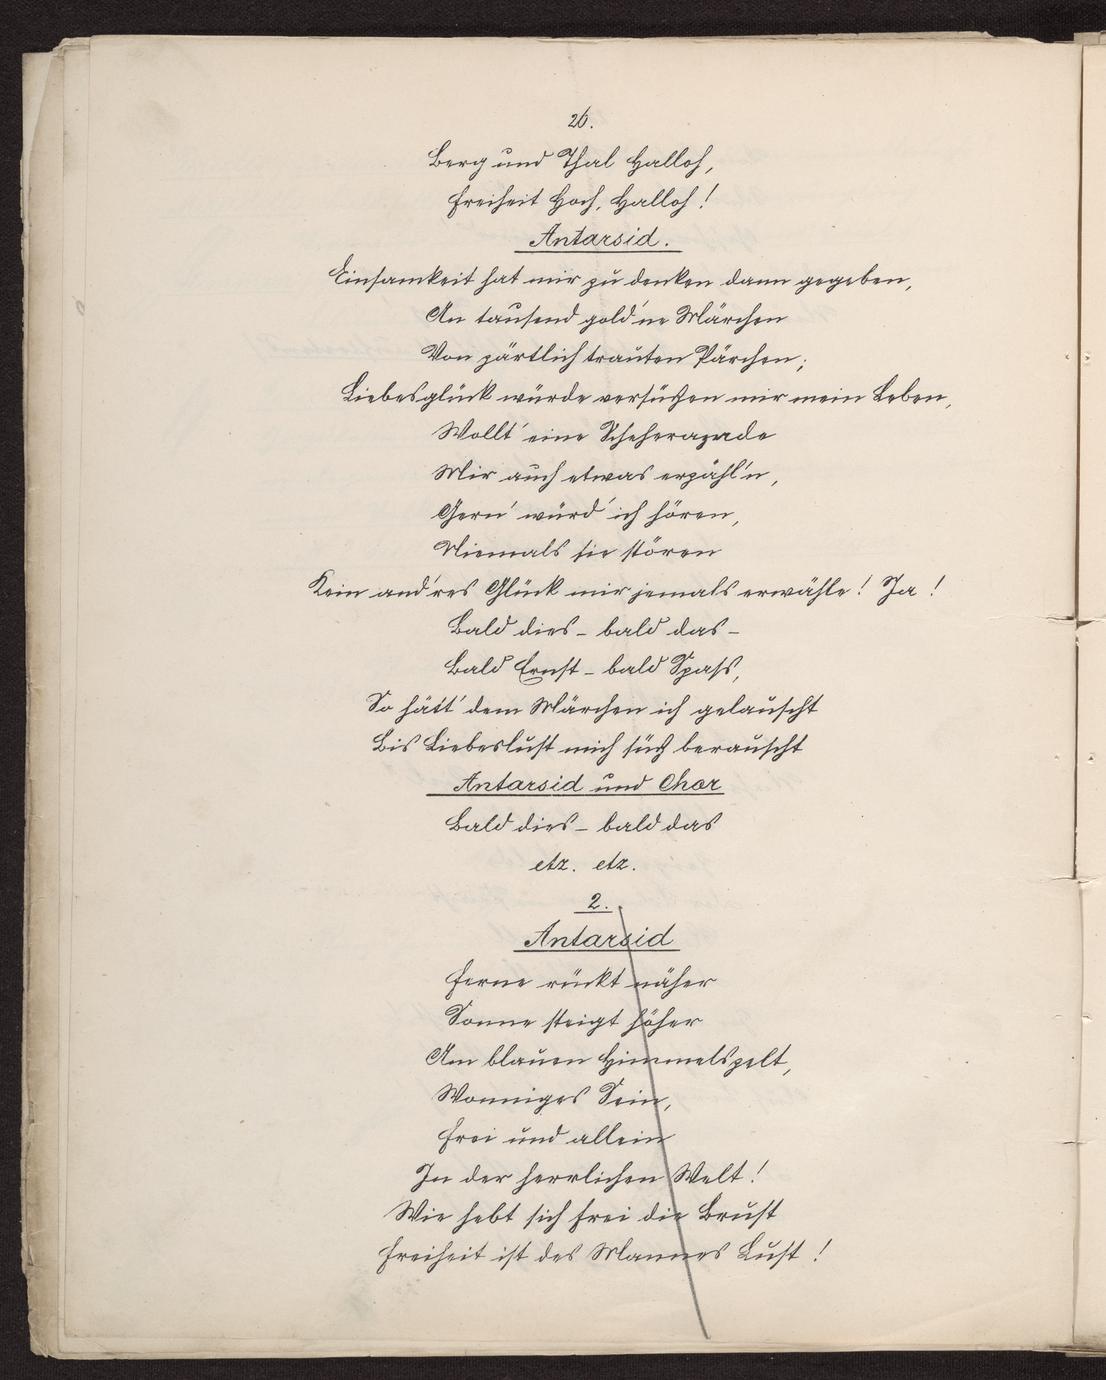 26.
Berg und Thal Halloh,
Freiheit Hoch, Halloh!
Antarsid.
Einsamkeit hat mir zu denken dann gegeben,
An tausend gold'ne Märchen
Von zärtlich trauten Pärchen;
Liebesglück würde versüßen mir mein Leben,
Wollt' eine Scheherazade
Mir auch etwas erzähl'n,
Gern' würd' ich hören,
Niemals sie stören
Kein and'res Glück mir jemals erwähle! Ja!
Bald dies – bald das –
Bald Ernst – bald Spass,
So hätt' dem Märchen ich gelauscht
Bis Liebeslust mich süß berauscht
Antarsid und Chor
Bald dies – bald das
etz. etz.
2.
Antarsid
Ferne rückt näher
Sonne steigt höher
Am blauen Himmelszelt,
Wonniges Sein,
Frei und allein
In der herrlichen Welt!
Wie hebt sich frei die Brust
Freiheit ist des Mannes Lust!